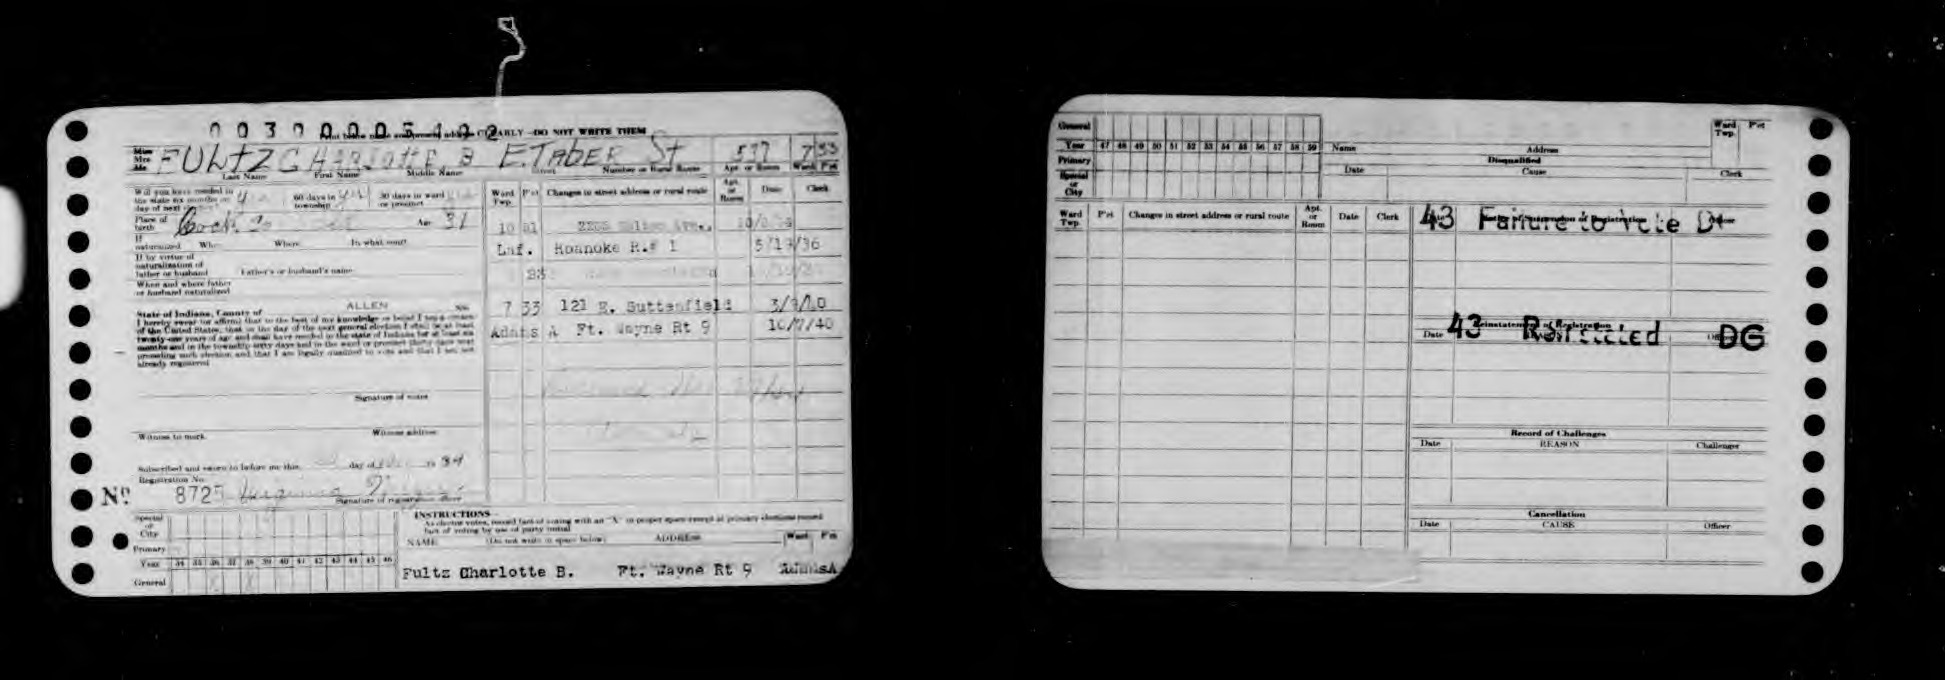 00390005402
Print below name and present address CLEARLY—DO NOT WRITE THEM
Miss Mrs. Mr. FULTZ CHARLOTTE B E. TABER St 537 7 33
Last Name First Name Middle Name Street Number or Rural Route Apt. or Room Ward P'ct
Will you have resided in the state six months on day of next election 60 days in township 30 days in ward or precinct
Place of birth Age 31
If naturalized When Where In what court
If by virtue of naturalization of father or husband Father's or husband's name
When and where father or husband naturalized
ALLEN
State of Indiana, County of SS:
I hereby swear (or affirm) that to the best of my knowledge or belief I am a citizen
of the United States, that on the day of the next general election I shall be at least
twenty-one years of age and shall have resided in the state of Indiana for at least six
months and in the township sixty days and in the ward or precinct thirty days next
preceding such election and that I am legally qualified to vote and that I am not
already registered
Signature of voter
Witness to mark Witness address
Subscribed and sworn to before me this day of 19 34
Registration No.
No 8725 Virginia
Signature of registration officer
Ward Twp. P'ct Changes in street address or rural route Apt. or Room Date Clerk
10 01
Laf. Roanoke R.# 1 5/19/36
7 33 121 E. Suttenfield 3/9/40
Adams A Ft. Wayne Rt 9 10/7/40
Special or City
Primary
Year 34 35 36 37 38 39 40 41 42 43 44 45 46
General X X
INSTRUCTIONS—
As elector votes, record fact of voting with an "X" in proper space except at primary elections record
fact of voting by use of party initial
NAME (Do not write in space below) ADDRESS Ward P'ct
Fultz Charlotte B. Ft. Wayne Rt 9 AdamsA
General
Year 47 48 49 50 51 52 53 54 55 56 57 58 59
Primary
Special or City
Ward Twp. P'ct
Name Address
Disqualified
Date Cause Clerk
Ward Twp. P'ct Changes in street address or rural route Apt. or Room Date Clerk
Date Notice of Suspension of Registration Officer
43 Failure to vote
Reinstatement of Registration
Date Officer
43 DG
Record of Challenges
Date REASON Challenger
Cancellation
Date CAUSE Officer